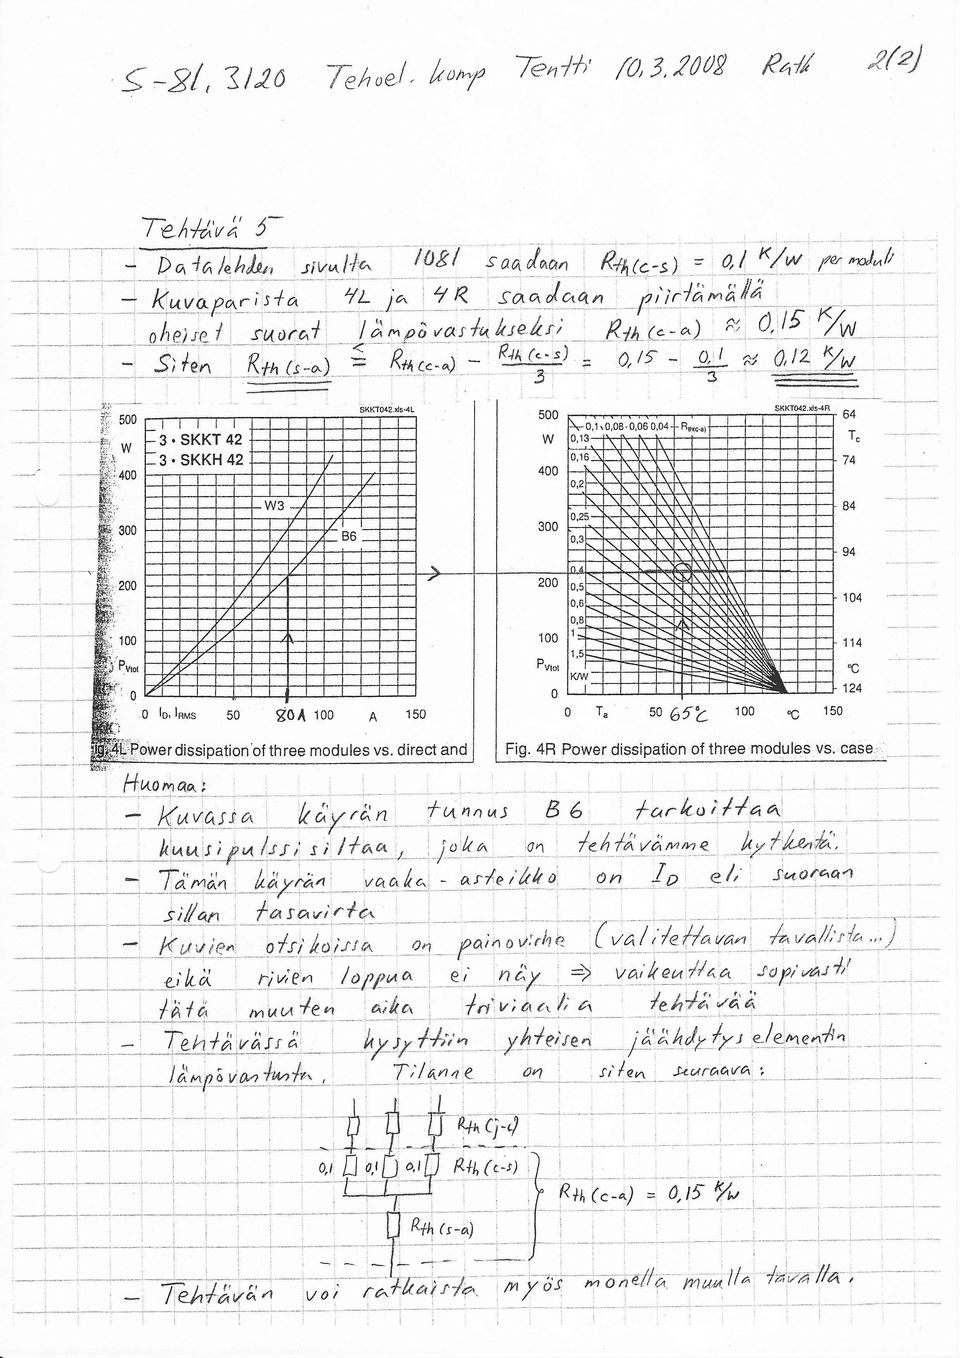 S-81.3120 Tehoel. komp Tentti 10.3.2008 Ratk 2(2)
Tehtävä 5
- Datalehden sivulta 1081 saadaan Rth(c-s) = 0,1 K/W per moduli
- Kuvaparista 4L ja 4R saadaan piirtämällä
oheiset suorat lämpövastukseksi Rth(c-a) ≈ 0,15 K/W
- Siten Rth(s-a) ≤ Rth(c-a) - Rth(c-s)/3 = 0,15 - 0,1/3 ≈ 0,12 K/W
SKKT042.xls-4L
500
W
400
300
200
100
PVtot
0
3 • SKKT 42
3 • SKKH 42
W3
B6
0 ID, IRMS 50 80A 100 A 150
Fig. 4L Power dissipation of three modules vs. direct and
SKKT042.xls-4R
500
W
400
300
200
100
PVtot
0
0,1 0,08 0,06 0,04 Rth(c-a)
0,13
0,16
0,2
0,25
0,3
0,4
0,5
0,6
0,8
1
1,5
K/W
64
Tc
74
84
94
104
114
°C
124
0 Ta 50 65°C 100 °C 150
Fig. 4R Power dissipation of three modules vs. case
Huomaa:
- Kuvassa käyrän tunnus B6 tarkoittaa
kuusipulssisiltaa, joka on tehtävämme kytkentä.
- Tämän käyrän vaaka-asteikko on ID eli suoraan
sillan tasavirta
- Kuvien otsikoissa on painovirhe (valitettavan tavallista...)
eikä rivien loppua ei näy ⇒ vaikeuttaa sopivasti
tätä muuten aika triviaalia tehtävää
- Tehtävässä kysyttiin yhteisen jäähdytyselementin
lämpövastusta. Tilanne on siten seuraava:
Rth(j-c)
0,1 0,1 0,1 Rth(c-s)
Rth(c-a) = 0,15 K/W
Rth(s-a)
- Tehtävän voi ratkaista myös monella muulla tavalla.